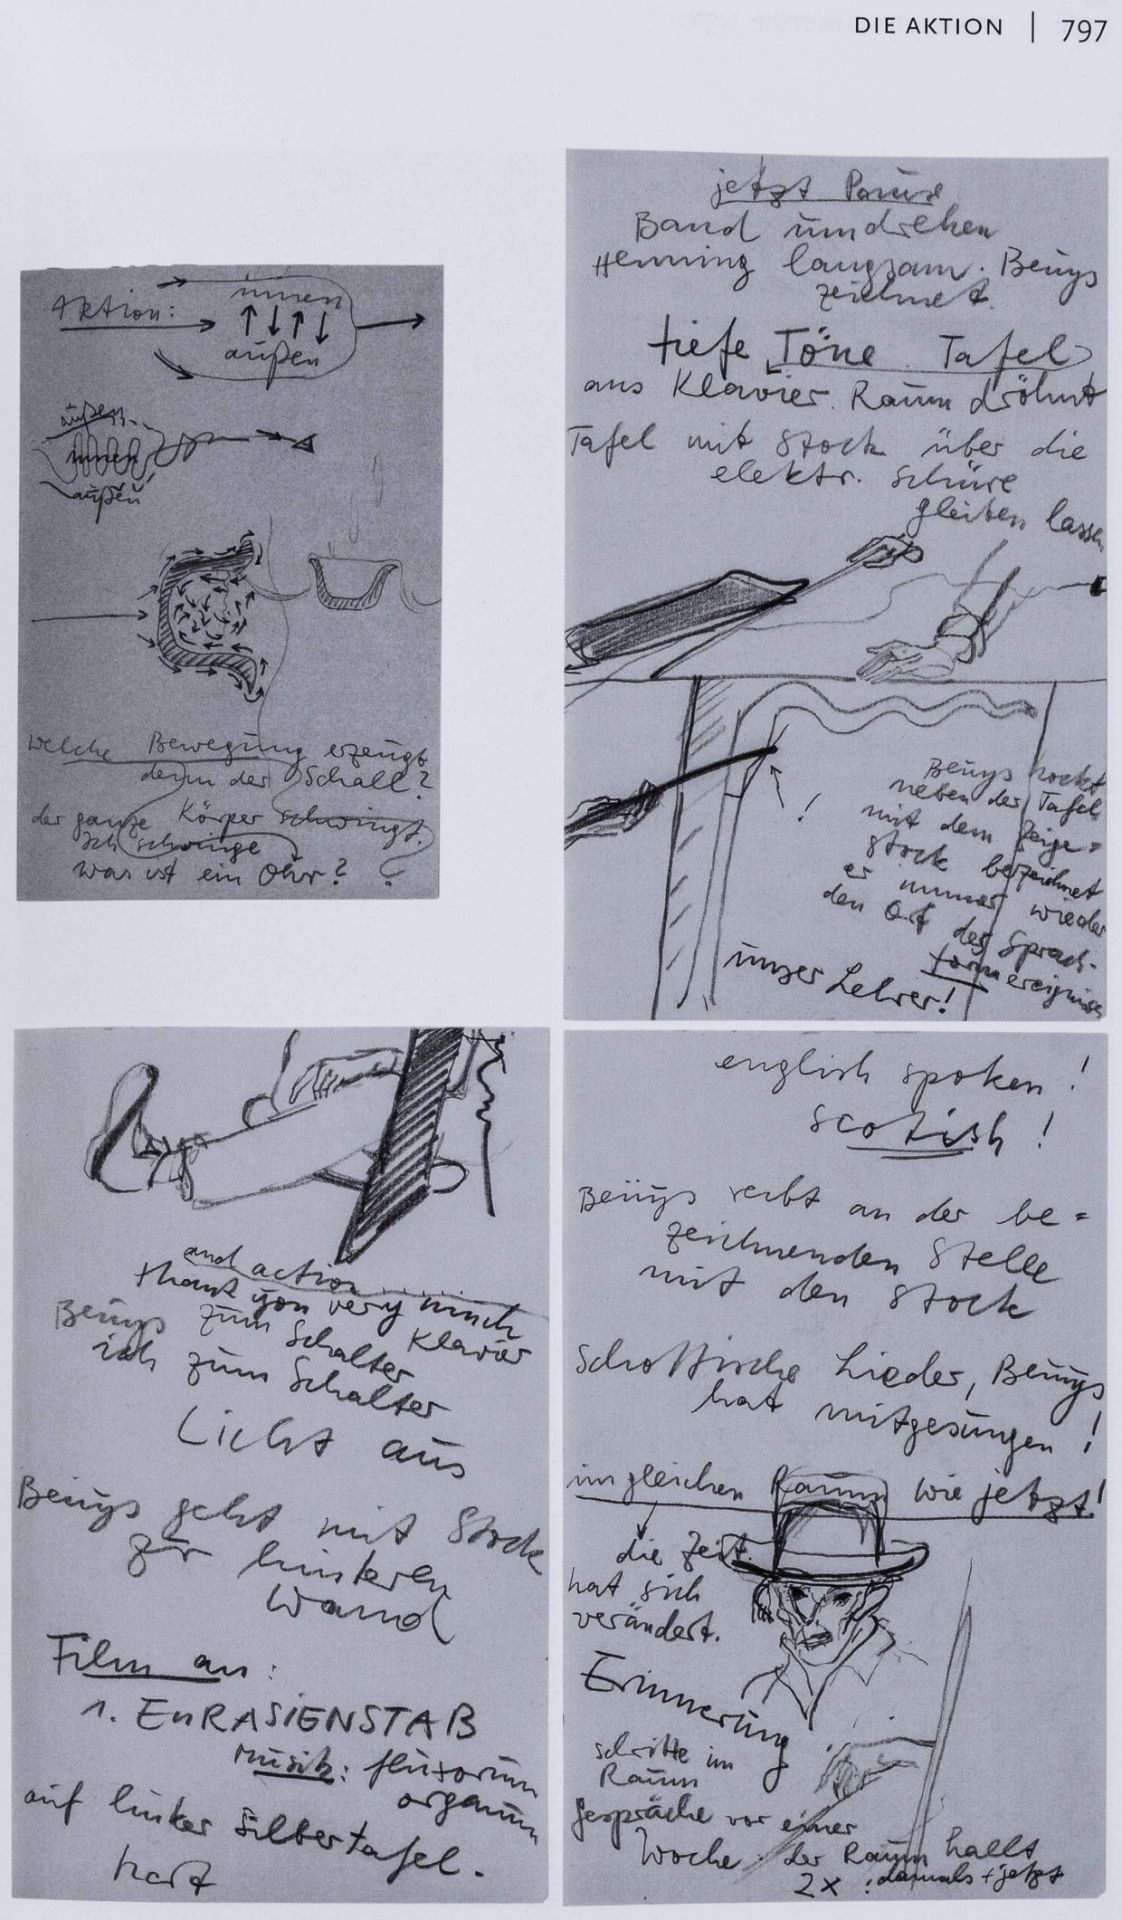 DIE AKTION | 797
Aktion:
innen
außen
außen
innen
außen
welche Bewegung erzeugt
denn der Schall?
der ganze Körper schwingt.
Ich schwinge
was ist ein Ohr? ?
jetzt Pause
Band umdrehen
Henning langsam. Beuys
zeichnet.
tiefe Töne Tafel
ans Klavier. Raum dröhnt
Tafel mit Stock über die
elektr. Schüre
gleiten lassen
!
Beuys hockt
neben der Tafel
mit dem Zeige=
stock bezeichnet
er immer wieder
den Ort des Sprach-
formereignisses
unser Lehrer!
and action......
thank you very much
Beuys zum Klavier
zum Schalter
ich zum Schalter
Licht aus
Beuys geht mit Stock
zur hinteren
Wand
Film an:
1. EuRASIENSTAB
Musik: fluxorum
organum
auf linker Silbertafel.
hart
english spoken!
scotish!
Beuys reibt an der be=
zeichnenden Stelle
mit den Stock
Schottische Lieder, Beuys
hat mitgesungen!
im gleichen Raum wie jetzt!
die Zeit
hat sich
verändert.
Erinnerung
schritte im
Raum
gespräche vor einer
Woche. der Raum hallt
2x : damals + jetzt